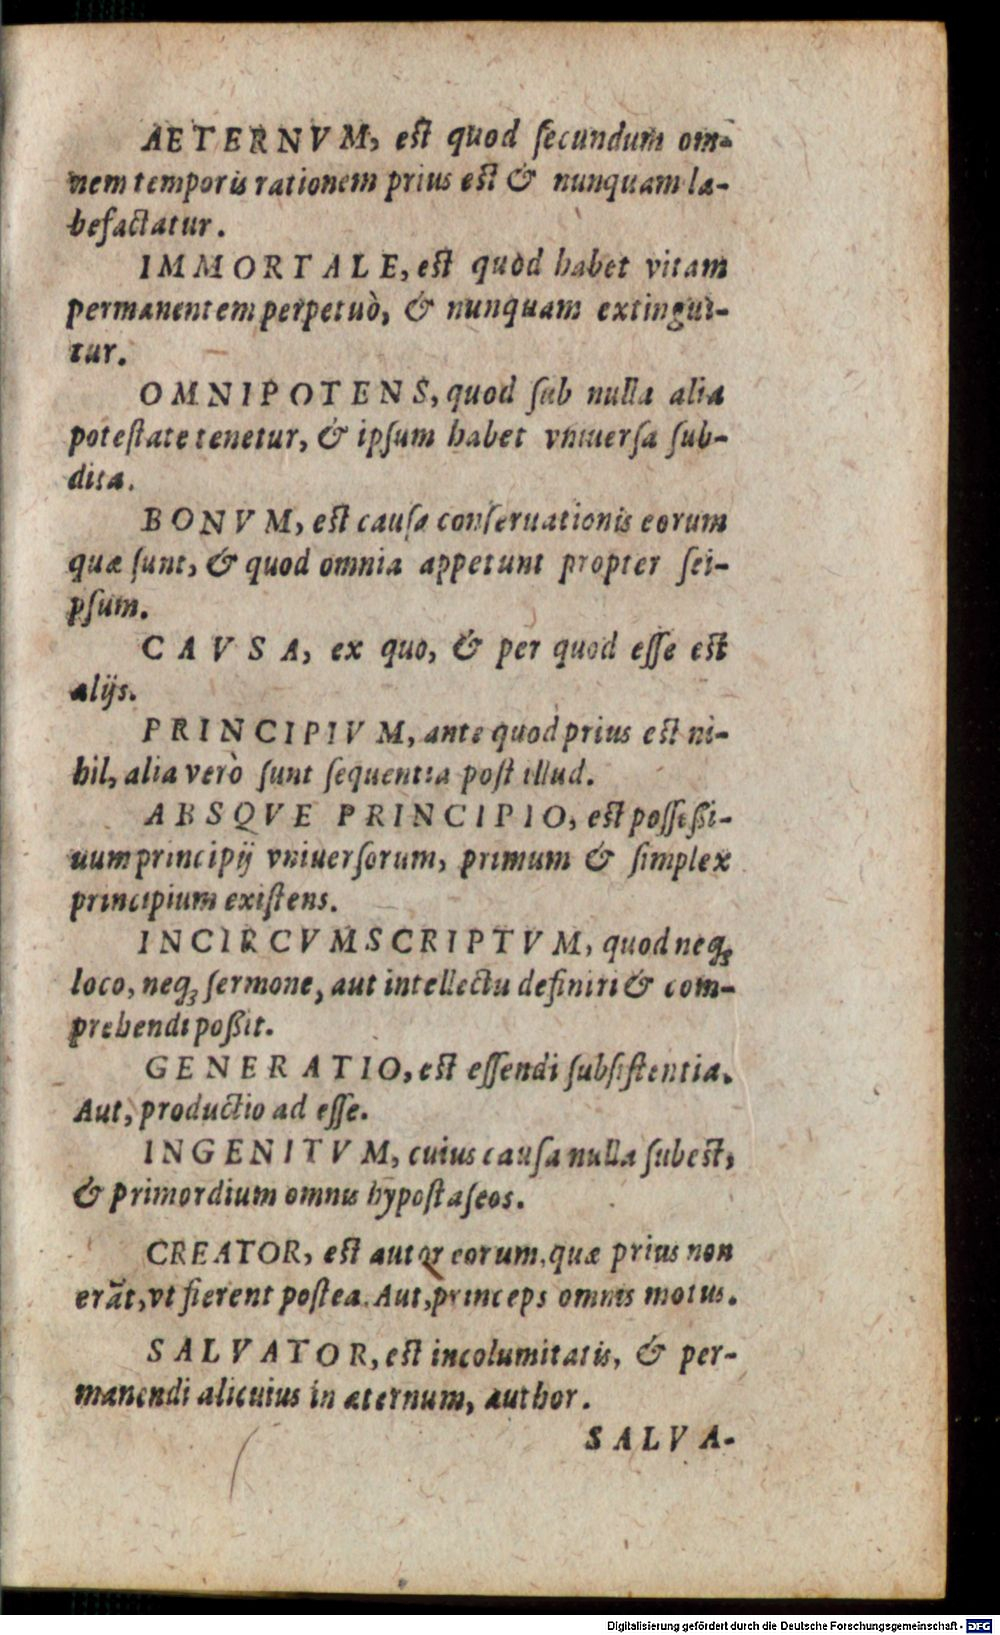 AETERNVM, est quod secundum om-
nem temporis rationem prius est & nunquam la-
befactatur.
IMMORTALE, est quod habet vitam
permanentem perpetuò, & nunquam extingui-
tur.
OMNIPOTENS, quod sub nulla alia
potestate tenetur, & ipsum habet vniuersa sub-
dita.
BONVM, est causa conseruationis eorum
quæ sunt, & quod omnia appetunt propter sei-
psum.
CAVSA, ex quo, & per quod esse est
alijs.
PRINCIPIVM, ante quod prius est ni-
hil, alia verò sunt sequentia post illud.
ABSQVE PRINCIPIO, est posseßi-
uum principij vniuersorum, primum & simplex
principium existens.
INCIRCVMSCRIPTVM, quod neq;
loco, neq; sermone, aut intellectu definiri & com-
prehendi poßit.
GENERATIO, est essendi subsistentia.
Aut, productio ad esse.
INGENITVM, cuius causa nulla subest,
& primordium omnis hypostaseos.
CREATOR, est autor eorum, quæ prius non
erãt, vt fierent postea. Aut, princeps omnis motus.
SALVATOR, est incolumitatis, & per-
manendi alicuius in æternum, author.
SALVA-
Digitalisierung gefördert durch die Deutsche Forschungsgemeinschaft - DFG